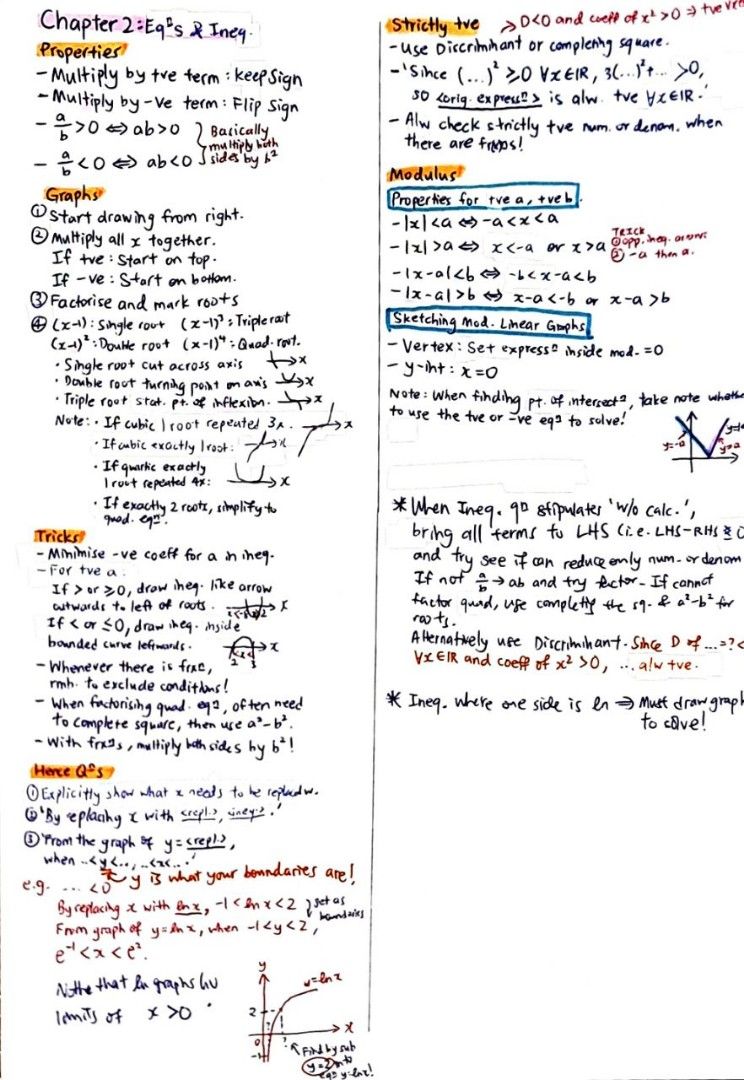 Chapter 2: Eqⁿs & Ineq.
Properties
- Multiply by +ve term : keep sign
- Multiply by -ve term : Flip sign
- a/b > 0 ⇔ ab > 0
- a/b < 0 ⇔ ab < 0
Basically
multiply both
sides by b²
Graphs
① Start drawing from right.
② Multiply all x together.
If +ve : Start on top.
If -ve : Start on bottom.
③ Factorise and mark roots
④ (x-1) : Single root (x-1)³ : Triple root
(x-1)² : Double root (x-1)⁴ : Quad. root.
• Single root cut across axis x
• Double root turning point on axis x
• Triple root stat. pt. of inflexion. x
Note: • If cubic 1 root repeated 3x. x
• If cubic exactly 1 root: x
• If quartic exactly
1 root repeated 4x: x
• If exactly 2 roots, simplify to
quad. eqⁿ.
Tricks
- Minimise -ve coeff for a in ineq.
- For +ve a :
If > or ≥0, draw ineq. like arrow
outwards to left of roots. x
If < or ≤0, draw ineq. inside
bounded curve leftwards. x
2 3
- Whenever there is frxⁿ,
rmb. to exclude conditions!
- When factorising quad. eqⁿ, often need
to complete square, then use a²-b².
- With frxⁿs, multiply both sides by b²!
Hence Qⁿs
① Explicitly show what x needs to be replaced w.
② 'By replacing x with <repl.>, <ineq.>.'
③ 'From the graph of y = <repl.>,
when ..<y<.., ..<x<...'
y is what your boundaries are!
e.g. ... < 0
By replacing x with ln x, -1 < ln x < 2
set as
boundaries
From graph of y = ln x, when -1 < y < 2,
e⁻¹ < x < e².
Note that ln graphs hv
limits of x > 0
y
y=ln x
2
x
0
-1
?
Find by sub
y=2 into
eqⁿ y=ln x!
Strictly +ve
D<0 and coeff of x² > 0 ⇒ +ve
- Use Discriminant or completing square.
- 'Since (...)² ≥ 0 ∀x∈IR, 3(...)²+... > 0,
so <orig. expressⁿ> is alw. +ve ∀x∈IR.'
- Alw check strictly +ve num. or denom. when
there are frxⁿs!
Modulus
Properties for +ve a, +ve b
- |x| < a ⇔ -a < x < a
- |x| > a ⇔ x < -a or x > a
TRICK
① opp. ineq.
② -a then a.
- |x-a| < b ⇔ -b < x-a < b
- |x-a| > b ⇔ x-a < -b or x-a > b
Sketching Mod. Linear Graphs
- Vertex : Set expressⁿ inside mod. = 0
- y-int : x = 0
Note: When finding pt. of intersectⁿ, take note
to use the +ve or -ve eqⁿ to solve!
y=-a
y=a
* When Ineq. qⁿ stipulates 'w/o calc.',
bring all terms to LHS (i.e. LHS-RHS
and try see if can reduce only num. or denom
If not a/b → ab and try factor. If cannot
factor quad, use completing the sq. & a²-b² for
roots.
Alternatively use Discriminant. Since D of ...=? <
∀x∈IR and coeff of x² > 0, ... alw +ve.
* Ineq. where one side is ln ⇒ Must draw graph
to solve!